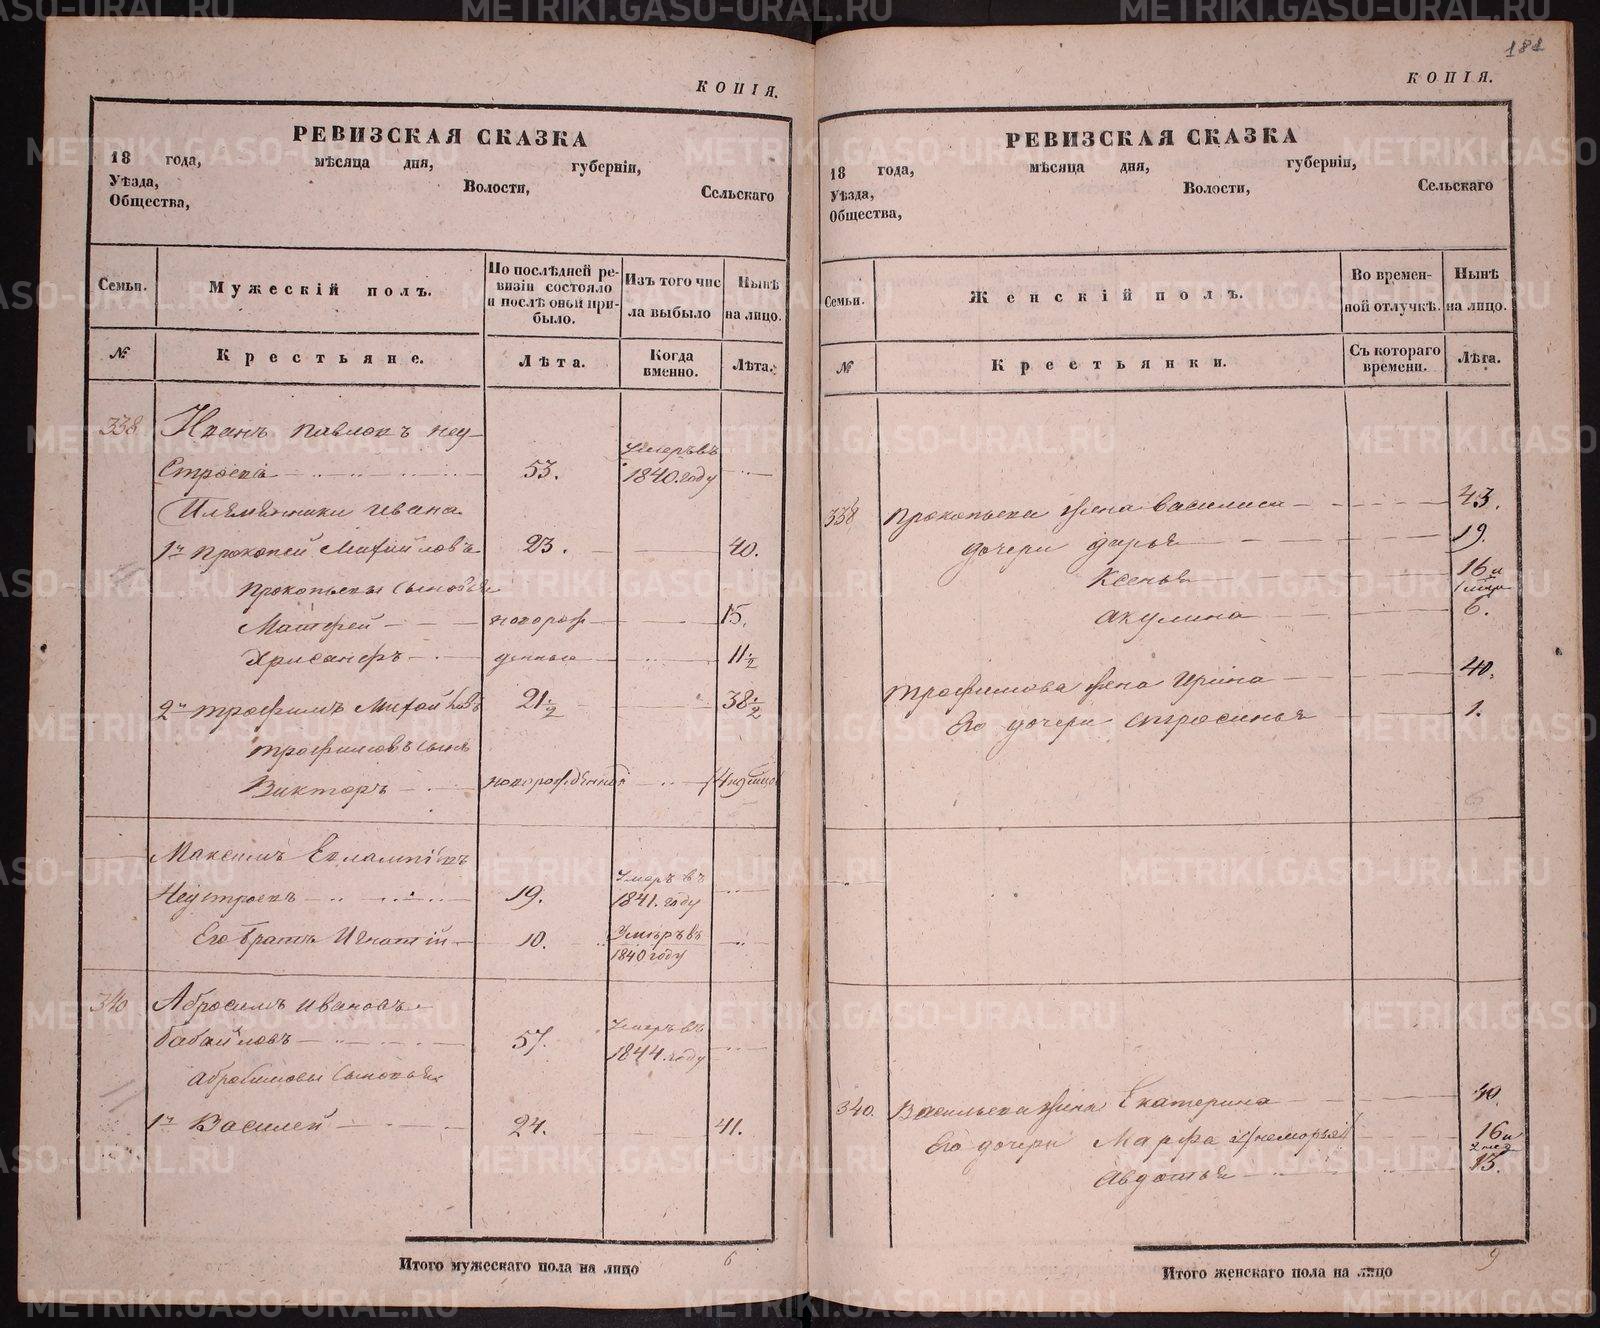 КОПІЯ.
РЕВИЗСКАЯ СКАЗКА
18 года, мѣсяца дня, губерніи,
Уѣзда, Волости, Сельскаго
Общества,
Семьи. Мужескій полъ. По послѣдней ревизіи состояло и послѣ оной прибыло. Изъ того числа выбыло Нынѣ на лицо.
№ Крестьяне. Лѣта. Когда именно. Лѣта.
338 Иванъ Павловъ Неу-
строевъ 53. Умеръ въ 1840. году
Племянники Ивана
1й Прокопей Михайловъ 23. 40.
Прокопьевы сыновья
Матфей новорож- 15.
Хрисанфъ денные 11 1/2
2й Трофимъ Михайловъ 21 1/2 38 1/2
Трофимовъ сынъ
Викторъ новорожденный
Максимъ Евлампіевъ
Неустроевъ 19. Умеръ въ 1841. году
Его братъ Игнатій 10. Умеръ въ 1840 году
340 Абросимъ Ивановъ
Бабайловъ 57. Умеръ въ 1844. году
Абросимовы сыновья
1й Василей 24. 41.
Итого мужескаго пола на лицо 6
181
КОПІЯ.
РЕВИЗСКАЯ СКАЗКА
18 года, мѣсяца дня, губерніи,
Уѣзда, Волости, Сельскаго
Общества,
Семьи. Женскій полъ. Во временной отлучкѣ. Нынѣ на лицо.
№ Крестьянки. Съ котораго времени. Лѣта.
338 Прокопьева жена Василиса 43.
дочери Дарья 19.
Ксенья 16 и
Акулина 6.
Трофимова жена Ирина 40.
Его дочери 1.
340. Васильева жена Екатерина 40.
Его дочери Марфа 16 и
Авдотья 13.
Итого женскаго пола на лицо 9
METRIKI.GASO-URAL.RU